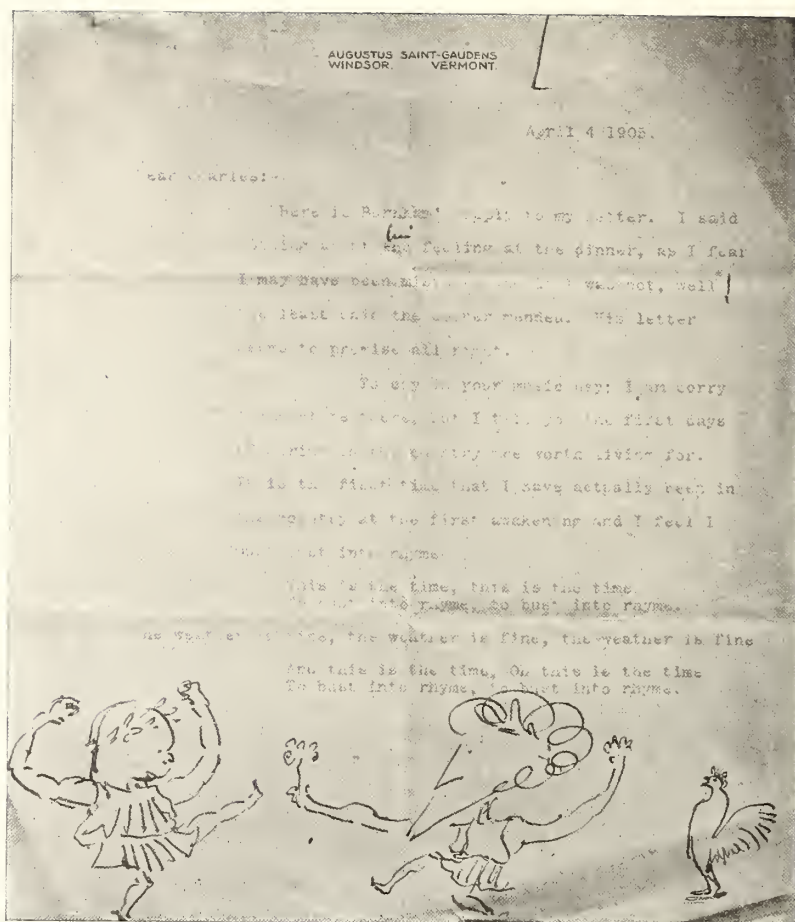 AUGUSTUS SAINT-GAUDENS
WINDSOR. VERMONT.
April 4 1905.
ear Charles:
Here is reply to my letter. I said
feeling at the dinner, as I fear
I may have been was not, well
least said the sooner mended. His letter
to promise all right.
To say in your music day: I am sorry
there, but I first days
the country are worth living for.
It is the first time that I have actually been in
country at the first awakening and I feel I
bust into rhyme
This is the time, this is the time
bust into rhyme, to bust into rhyme.
he weather is fine, the weather is fine, the weather is fine
And this is the time, Oh this is the time
To bust into rhyme, to bust into rhyme.